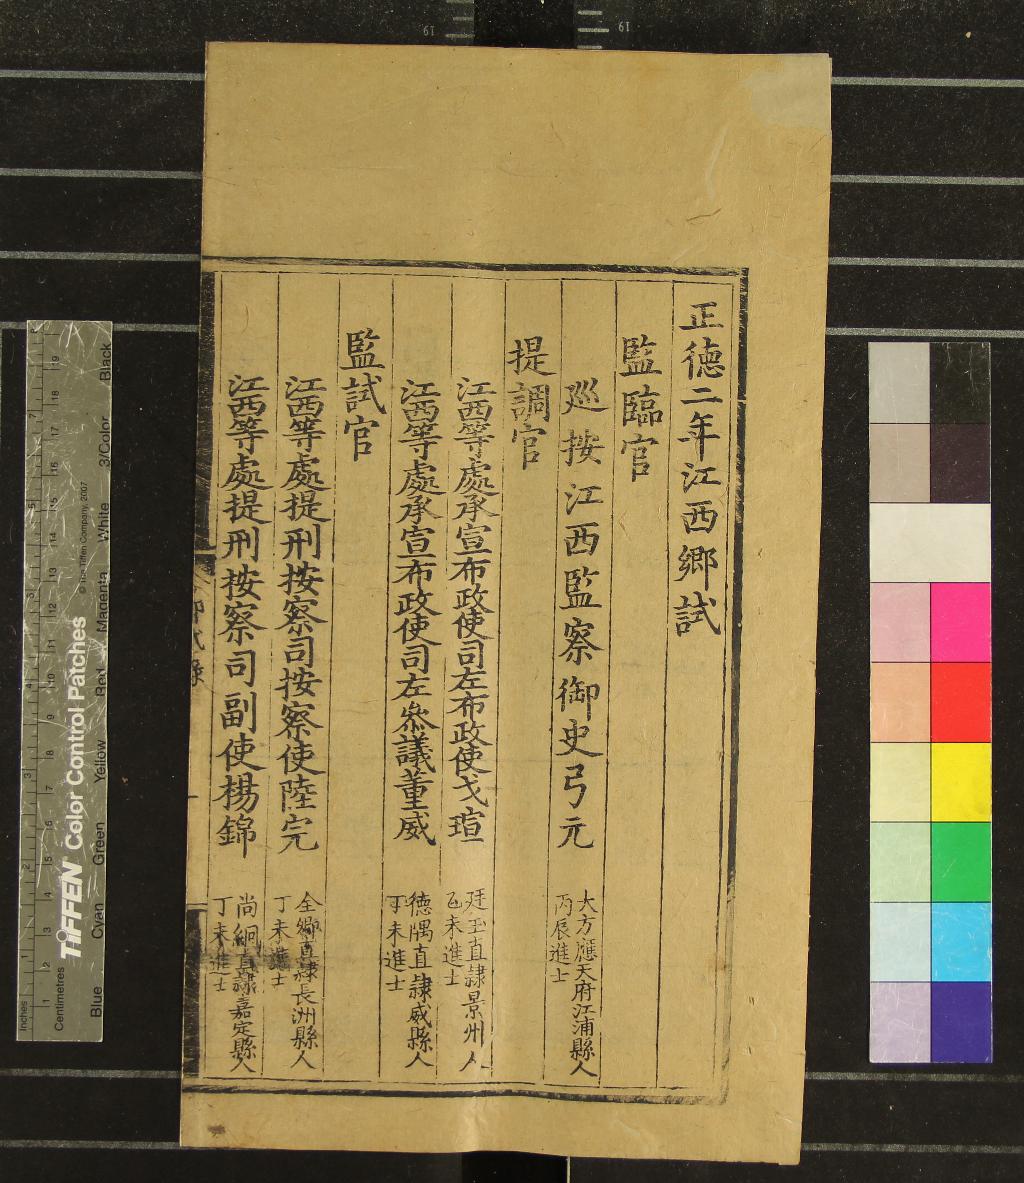 正德二年江西鄉試
監臨官
巡按江西監察御史弓元
大方應天府江浦縣人
丙辰進士
提調官
江西等處承宣布政使司左布政使戈瑄
廷玉直隸景州人
乙未進士
江西等處承宣布政使司左叅議董威
德隅直隸威縣人
丁未進士
監試官
江西等處提刑按察司按察使陸完
全卿直隸長洲縣人
丁未進士
江西等處提刑按察司副使楊錦
尚絅直隸嘉定縣人
丁未進士
鄉試錄
TIFFEN Color Control Patches
© The Tiffen Company, 2007
Blue Cyan Green Yellow Red Magenta White 3/Color Black
Inches
1 2 3 4 5 6 7
Centimetres
1 2 3 4 5 6 7 8 9 10 11 12 13 14 15 16 17 18 19
19
19